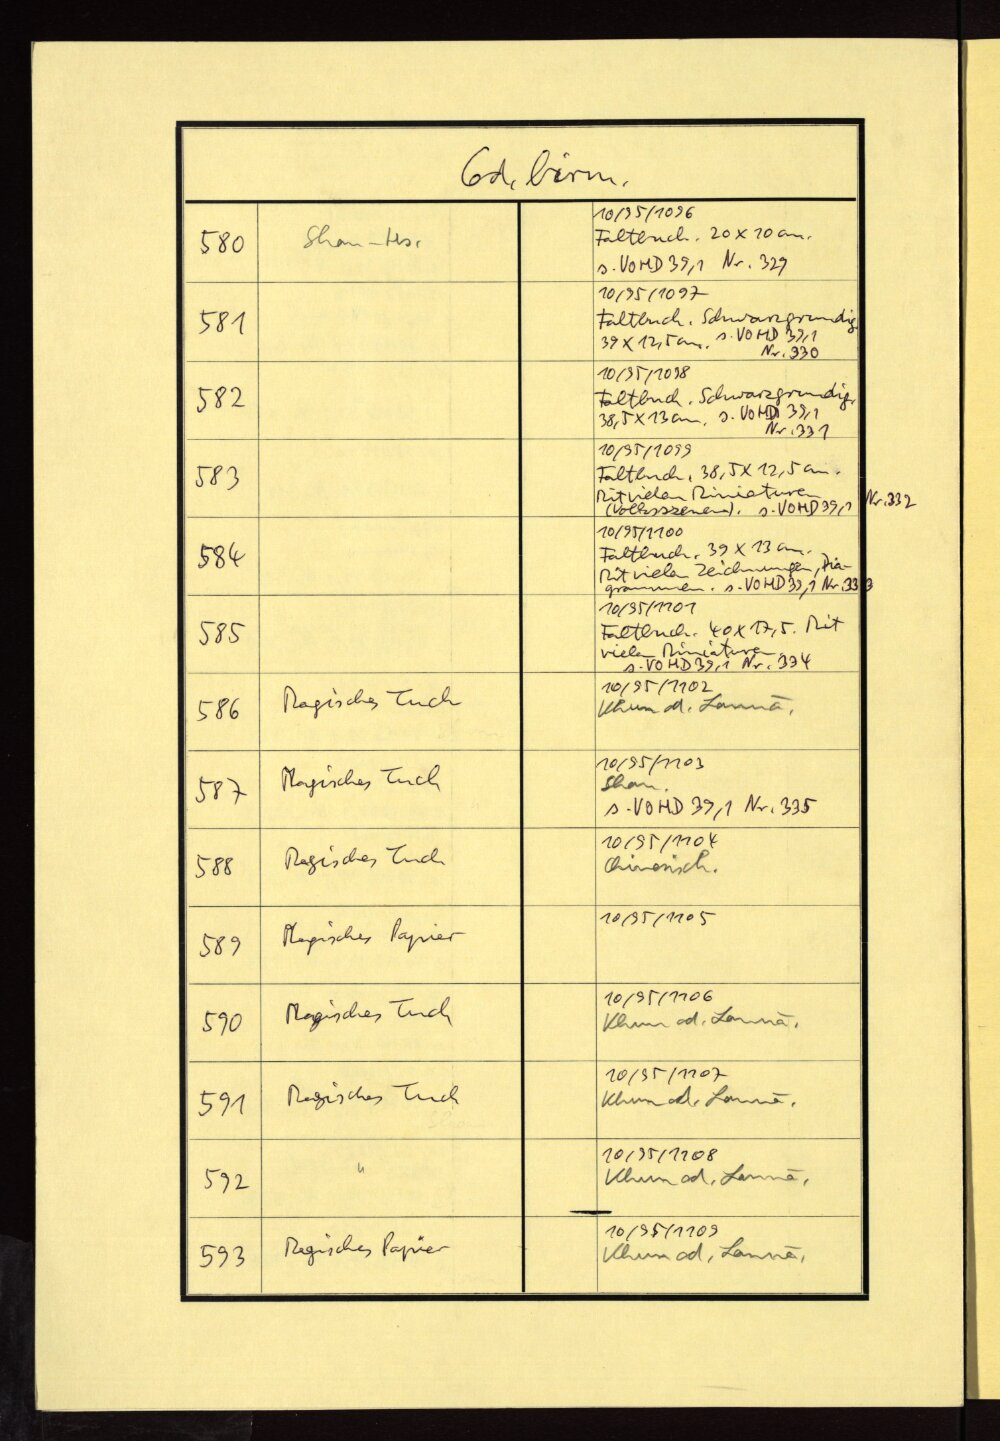 Cod. birm.
580 Shan-Hs. 10/95/1096
Faltbuch. 20 x 10 cm.
s. VOHD 39,1 Nr. 329
581 10/95/1097
Faltbuch. Schwarzgrundig.
39 x 12,5 cm. s. VOHD 39,1
Nr. 330
582 10/95/1098
Faltbuch. Schwarzgrundig.
38,5 x 13 cm. s. VOHD 39,1
Nr. 331
583 10/95/1099
Faltbuch. 38,5 x 12,5 cm.
Mit vielen Miniaturen
(Volksszenen). s. VOHD 39,1 Nr. 332
584 " 10/95/1100
Faltbuch. 39 x 13 cm.
Mit vielen Zeichnungen, Dia-
grammen. s. VOHD 39,1 Nr. 333
585 10/95/1101
Faltbuch. 40 x 17,5. Mit
vielen Miniaturen
s. VOHD 39,1 Nr. 334
586 Magisches Tuch 10/95/1102
Khün od. Lannā.
587 Magisches Tuch 10/95/1103
Shan.
s. VOHD 39,1 Nr. 335
588 Magisches Tuch 10/95/1104
Chinesisch.
589 Magisches Papier 10/95/1105
590 Magisches Tuch 10/95/1106
Khün od. Lannā.
591 Magisches Tuch 10/95/1107
Khün od. Lannā.
592 " 10/95/1108
Khün od. Lannā.
593 Magisches Papier 10/95/1109
Khün od. Lannā.